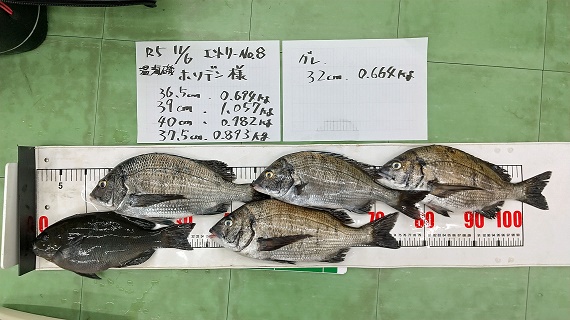 R5 11/6 エントリーNo,8
ホリデン様
36.5cm . 0.694kg
39cm . 1.057kg
40cm . 0.982kg
37.5cm . 0.893kg
グレ
32cm . 0.664kg
5
90 100